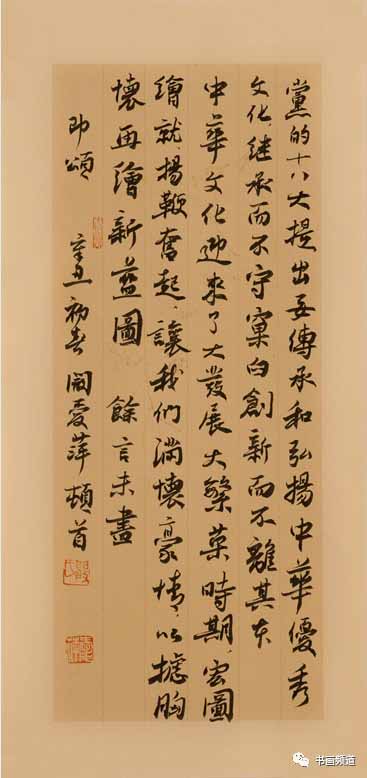 黨的十八大提出要傳承和弘揚中華優秀
文化,继承而不守窠臼創新而不離其本
中華文化迎来了大發展大繁荣時期,宏圖
繪就,揚鞭奮起,讓我們滿懷豪情,以攄胸
懷再繪新藍圖 餘言未盡
即頌
辛丑初春 愛萍頓首
书画频道